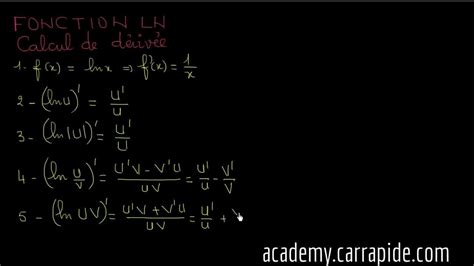 FONCTION LN
Calcul de dérivée
1- f(x) = ln x ⇒ f'(x) = 1/x
2- (ln u)' = u'/u
3- (ln |u|)' = u'/u
4- (ln u/v)' = (u'v - v'u)/uv = u'/u - v'/v
5- (ln uv)' = (u'v + v'u)/uv = u'/u +
academy.carrapide.com